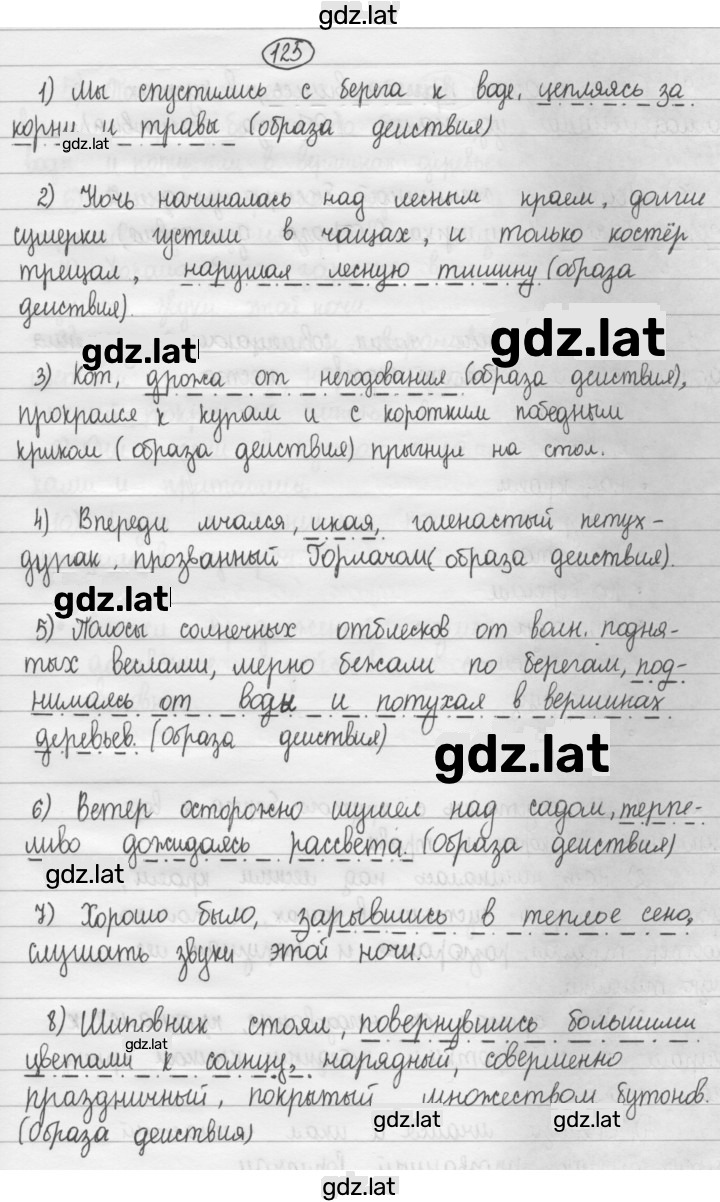 gdz.lat
125
1) Мы спустились с берега к воде, цепляясь за
корни и травы (образа действия)
gdz.lat
2) Ночь начиналась над лесным краем, долгие
сумерки густели в чащах, и только костёр
трещал, нарушая лесную тишину (образа
действия).
gdz.lat
gdz.lat
3) Кот, дрожа от негодования (образа действия),
прокрался к курам и с коротким победным
криком (образа действия) прыгнул на стол.
4) Впереди мчался, икая, голенастый петух-
дурак, прозванный Горлачом (образа действия).
gdz.lat
5) Полосы солнечных отблесков от волн, подня-
тых веслами, мерно бежали по берегам, под-
нимаясь от воды и потухая в вершинах
деревьев. (Образа действия)
gdz.lat
6) Ветер осторожно шумел над садом, терпе-
ливо дожидаясь рассвета. (Образа действия)
gdz.lat
7) Хорошо было, зарывшись в теплое сено,
слушать звуки этой ночи.
8) Шиповник стоял, повернувшись большими
gdz.lat
цветами к солнцу, нарядный, совершенно
праздничный, покрытый множеством бутонов.
(Образа действия)
gdz.lat
gdz.lat
gdz.lat